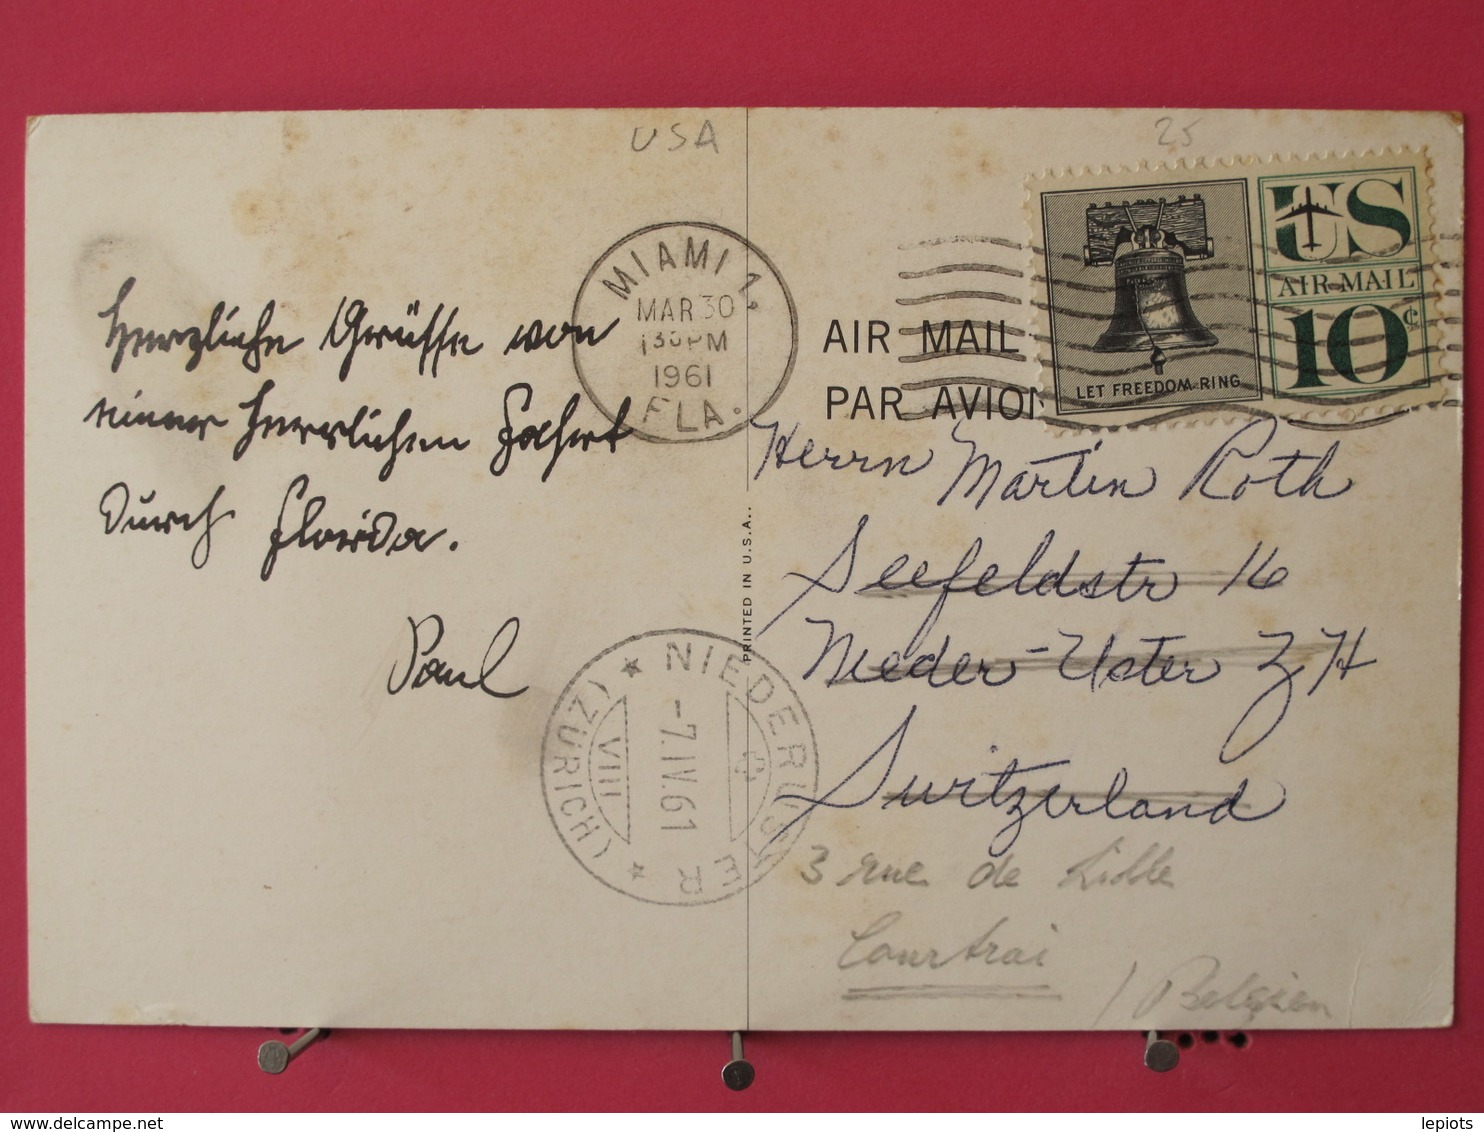 USA
25
MIAMI 2.
MAR 30
1 30 PM
1961
FLA.
AIR MAIL
PAR AVION
LET FREEDOM RING
US
AIR MAIL
10¢
Herzliche Grüsse von
einer herrlichen Fahrt
durch Florida.
Paul
PRINTED IN U.S.A..
Herrn Martin Roth
Seefeldstr 16
Nieder-Uster ZH
Switzerland
NIEDERUSTER
(ZÜRICH)
-7.IV.61
VIII
3 rue de Lille
Courtrai
/ Belgien
delcampe.net
lepiots